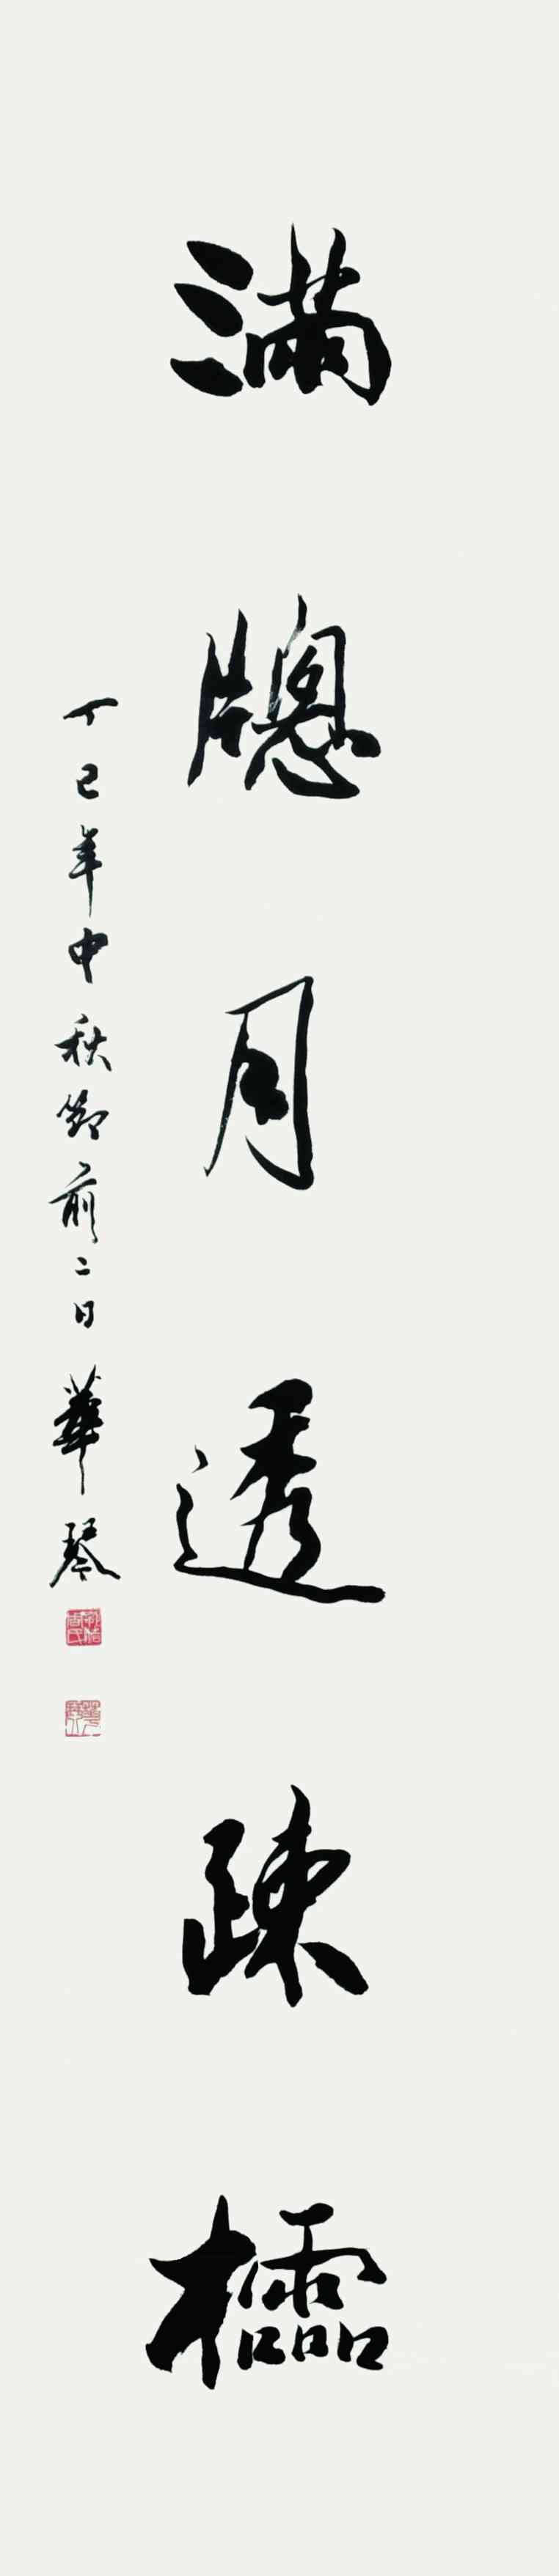 滿牕月透疎櫺
丁巳年中秋節前二日 華琴